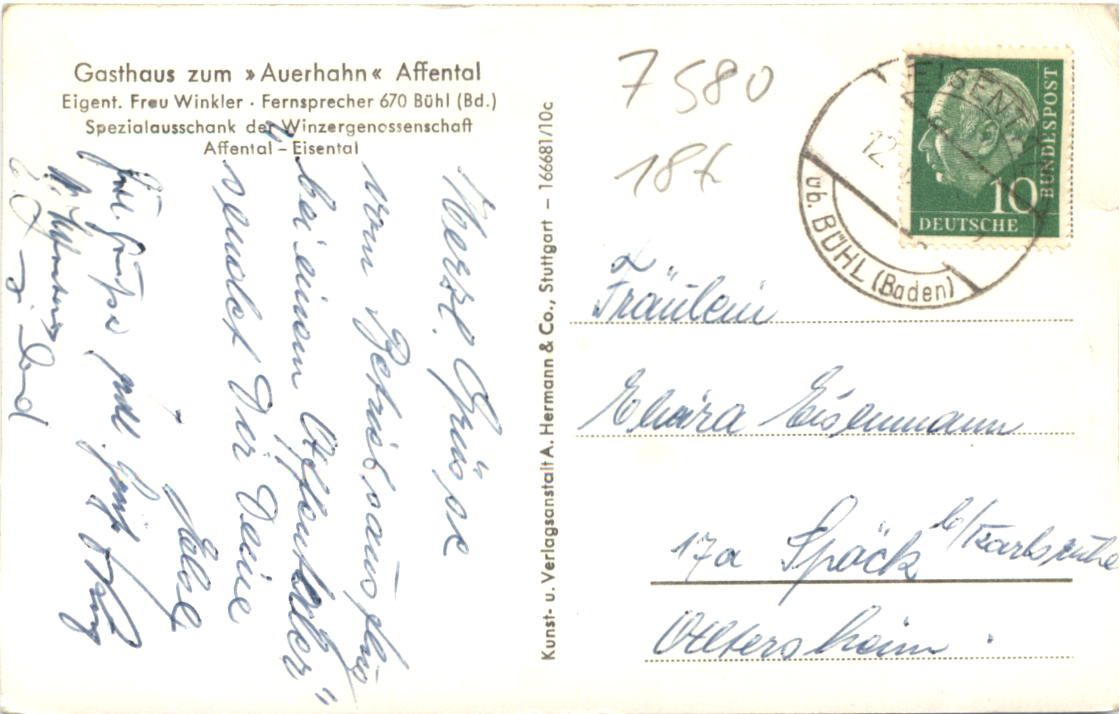 Gasthaus zum »Auerhahn« Affental
Eigent. Frau Winkler · Fernsprecher 670 Bühl (Bd.)
Spezialausschank der Winzergenossenschaft
Affental – Eisental
Herzl. Grüsse
vom Betriebsausflug
bei einem „Affentaler"
sendet Dir Deine
Kunst- u. Verlagsanstalt A. Hermann & Co., Stuttgart – 166681/10c
7580
18
EISENT
12
üb. BÜHL (Baden)
10
DEUTSCHE
BUNDESPOST
Fräulein
Elvira Eisenmann
17a Spöck b/Karlsruhe